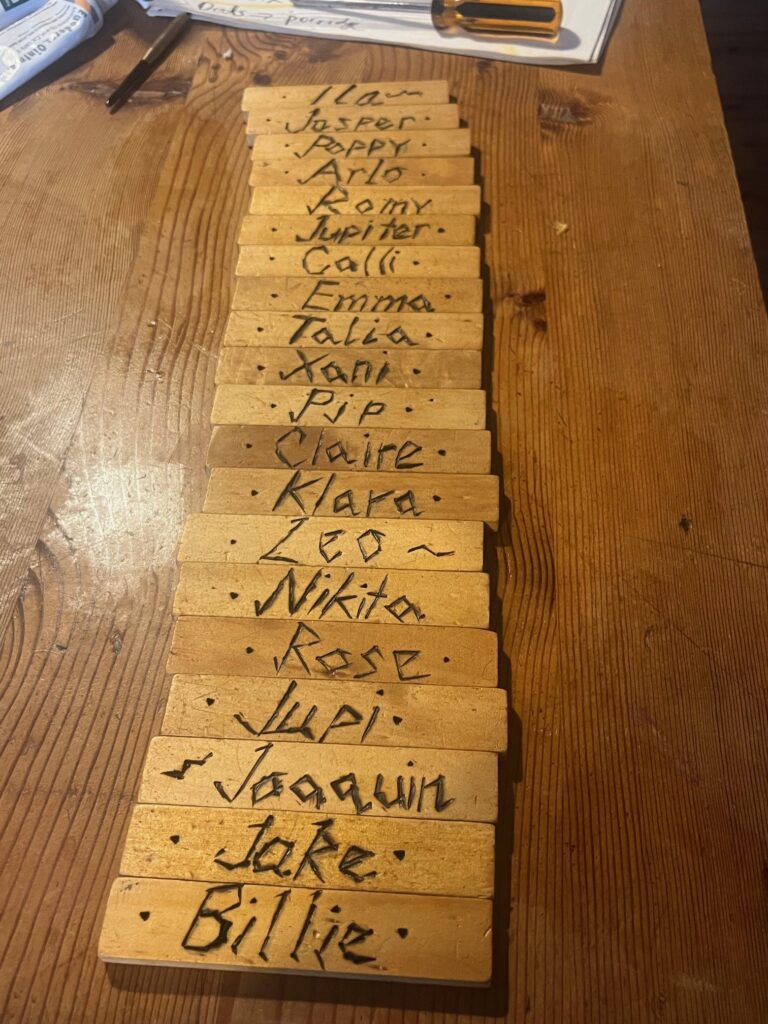 Oats → porridge
· Ila ~
· Jasper ·
· Poppy ·
· Arlo ·
Romy
· Jupiter ·
· Calli ·
· Emma ·
Talia ·
· Xani ·
· Pip ·
· Claire ·
· Klara ·
· Leo ~
· Nikita
· Rose ·
· Jupi ·
~ Joaquin
· Jake ·
· Billie ·